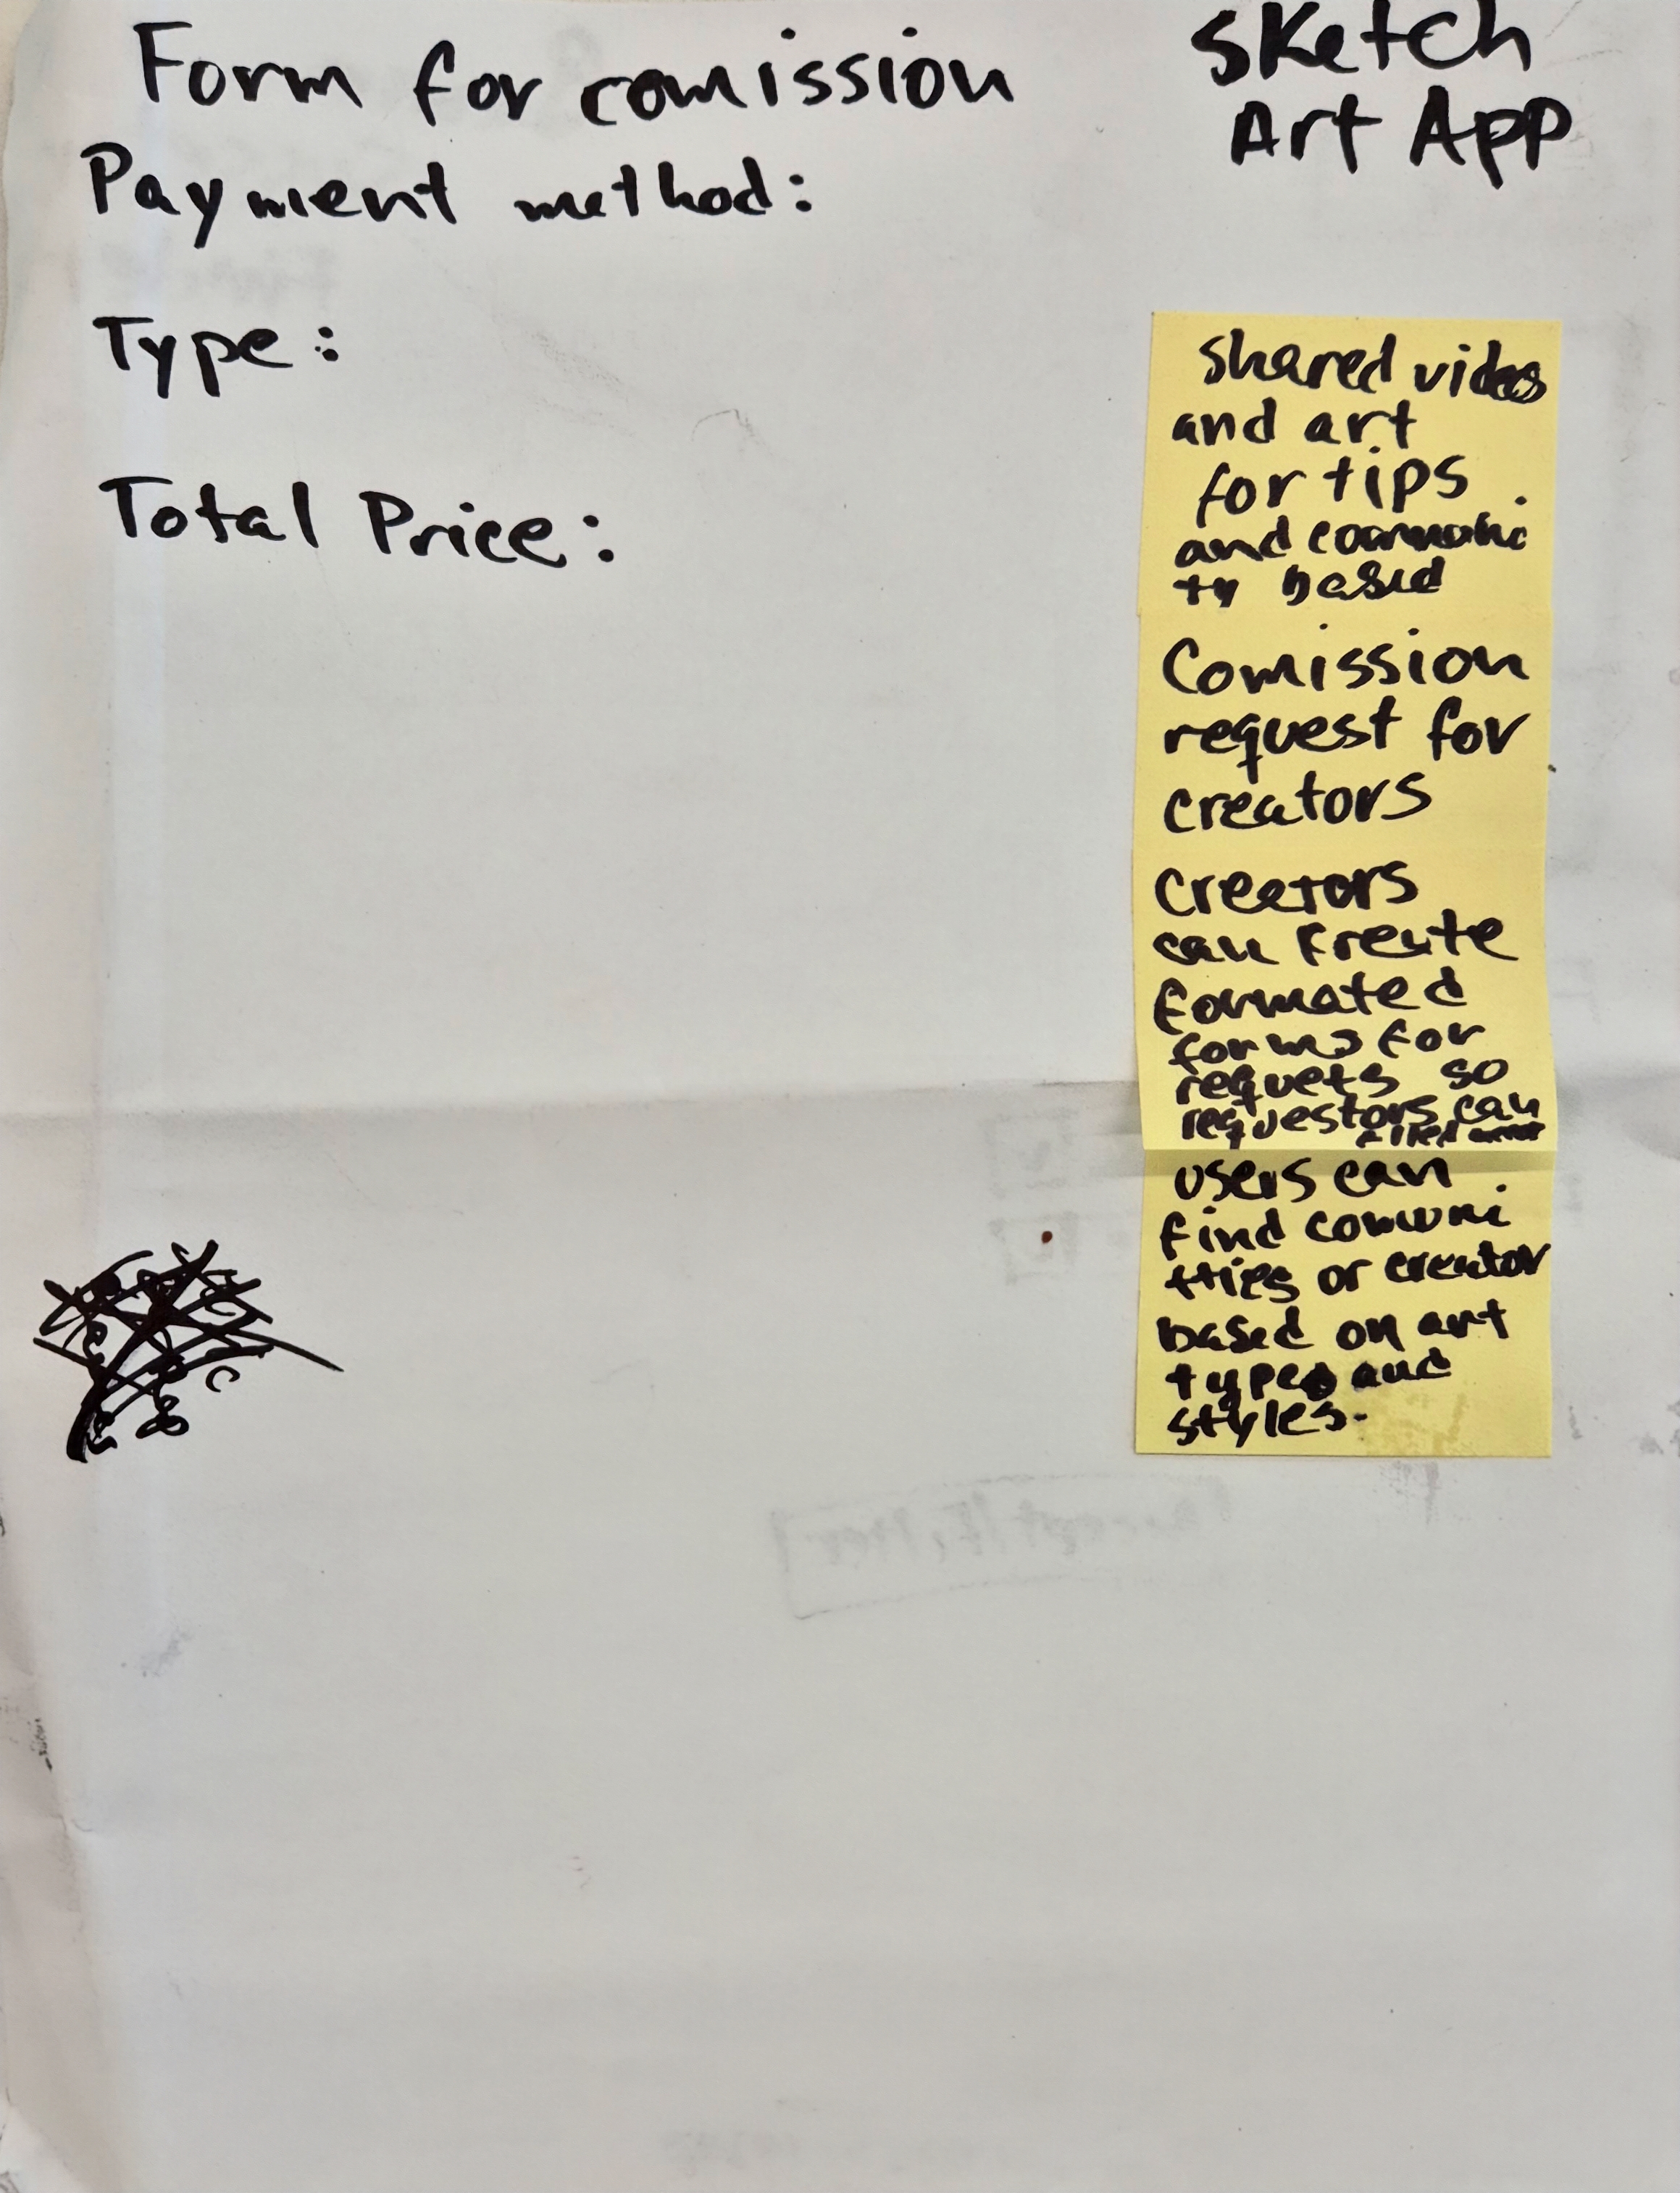 Form for comission
Payment method:
Type:
Total Price:
Sketch
Art App
Shared videos
and art
for tips
and communi
ty based
Comission
request for
creators
Creators
can create
formated
forms for
requets so
requestors can
users can
find communi
tties or creator
based on art
types and
styles.